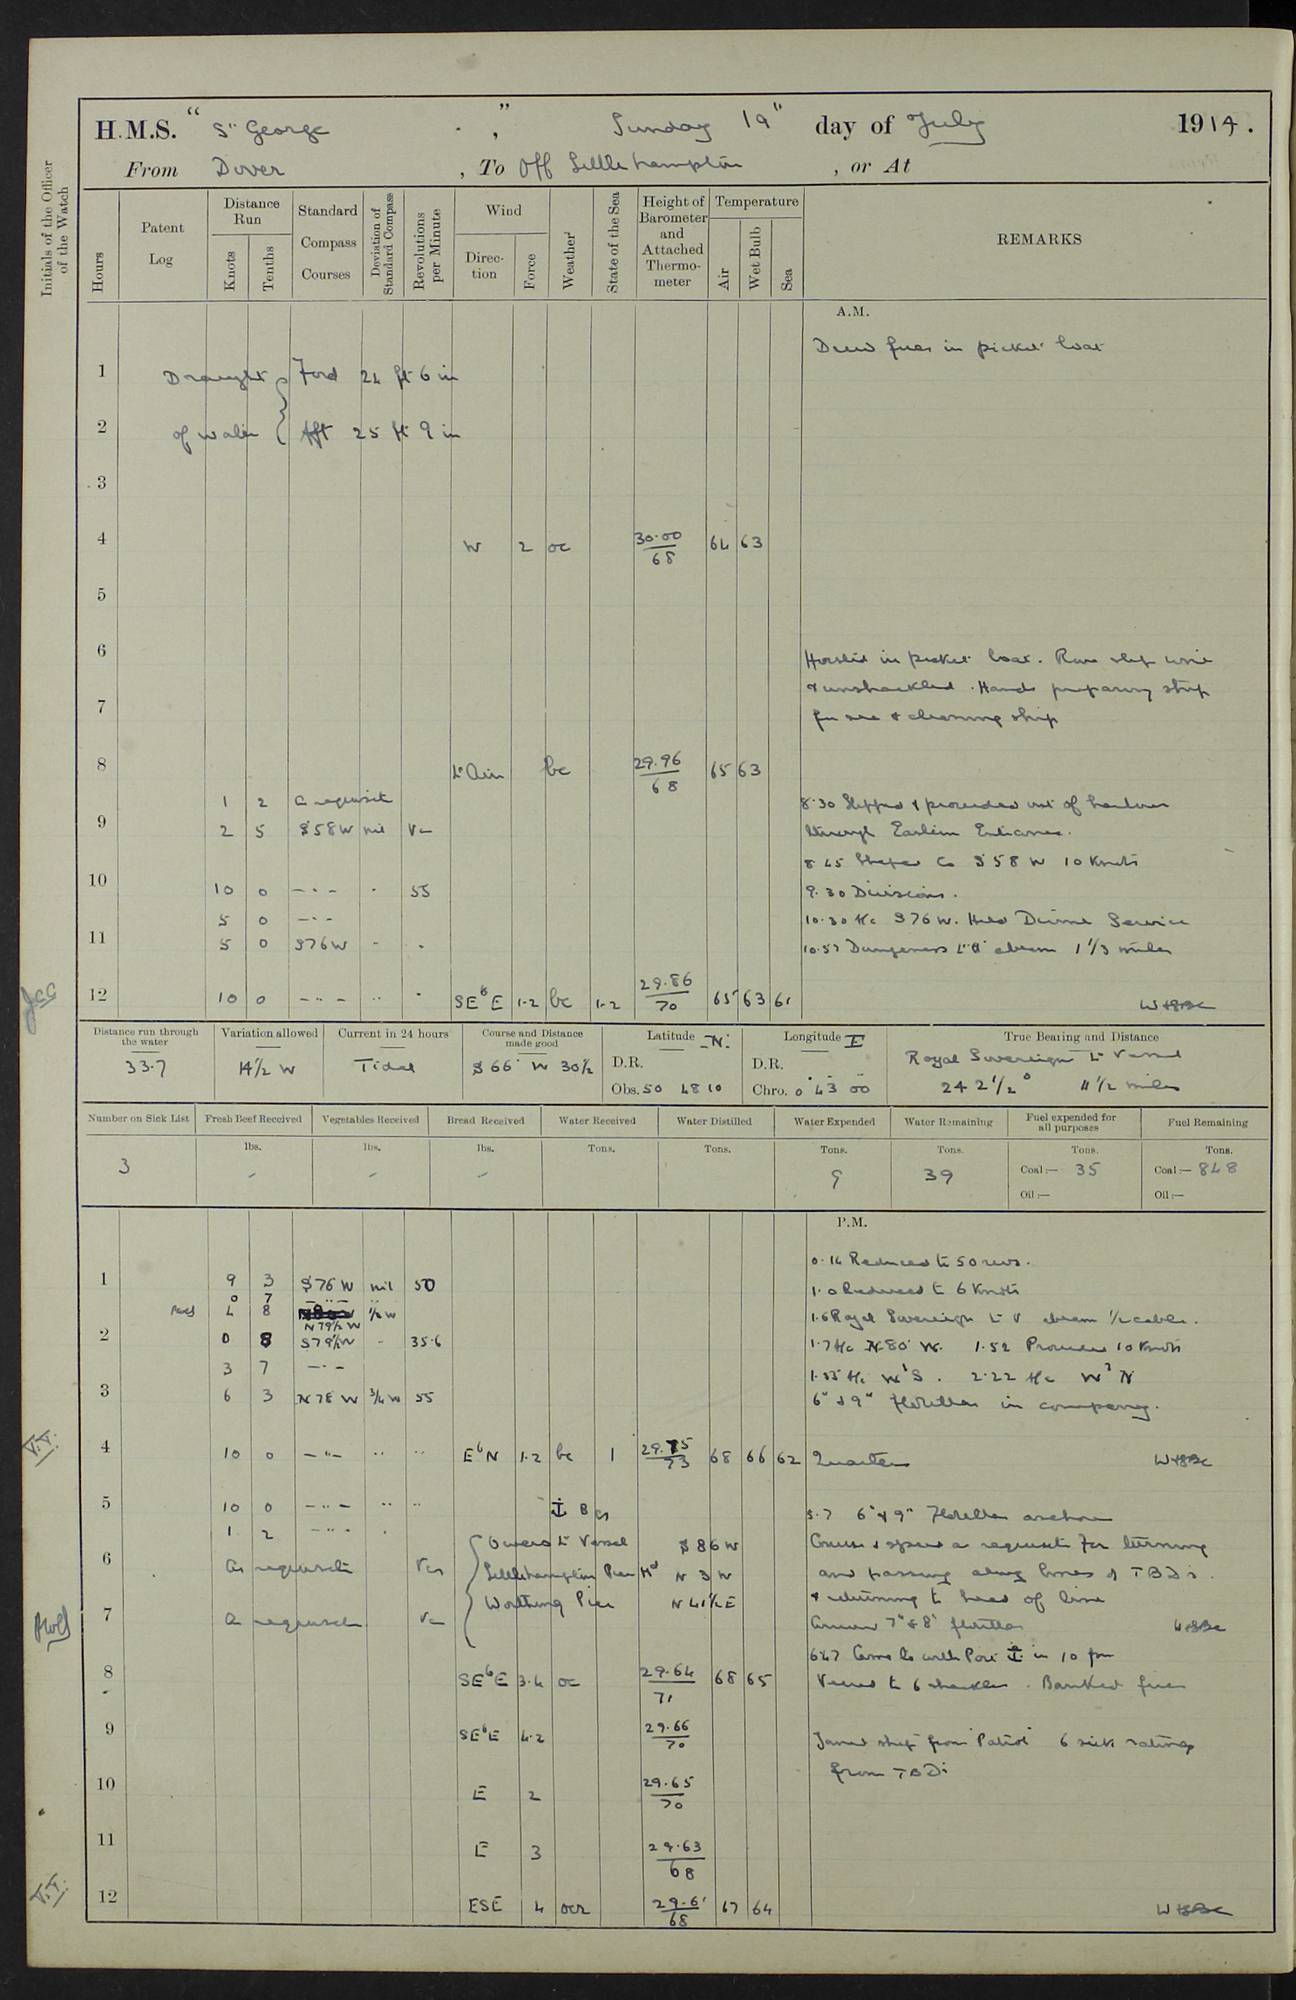 H.M.S. " St George " , Sunday 19" day of July 1914.
From Dover , To Off Littlehampton , or At
Initials of the Officer of the Watch
Hours
Patent Log
Distance Run
Knots
Tenths
Standard Compass Courses
Deviation of Standard Compass
Revolutions per Minute
Wind
Direction
Force
Weather
State of the Sea
Height of Barometer and Attached Thermometer
Temperature
Air
Wet Bulb
Sea
REMARKS
A.M.
Drew fires in picket boat
1 Draught { Ford 24 ft 6 in
2 of water { Aft 25 ft 9 in
3
4 W 2 oc 30.00/68 64 63
5
6 Hoisted in picket boat. Rove slip wire
& unshackled. Hands preparing ship
7 for sea & cleaning ship
8 Lt Airs bc 29.96/68 65 63
1 2 as requisite 8.30 Slipped & proceeded out of harbour
9 2 5 S58W nil Var through Eastern Entrance.
8 45 Shaped Co S 58 W 10 Knots
10 10 0 - · - · 55 9.30 Divisions.
5 0 - · - 10.30 A/c S 76 W. Held Divine Service
11 5 0 S76W - · 10.57 Dungeness Lt H abeam 1 1/3 miles
12 10 0 - ·· - ·· · SE b E 1.2 bc 1.2 29.86/70 65 63 61
Distance run through the water 33.7
Variation allowed 14 1/2 W
Current in 24 hours Tidal
Course and Distance made good S 66° W 30 1/2
Latitude N
D.R.
Obs. 50 48 10
Longitude E
D.R.
Chro. 0° 43' 00"
True Bearing and Distance
Royal Sovereign Lt Vessel
242 1/2° 11 1/2 miles
Number on Sick List
Fresh Beef Received
Vegetables Received
Bread Received
Water Received
Water Distilled
Water Expended
Water Remaining
Fuel expended for all purposes
Fuel Remaining
lbs. lbs. lbs. Tons. Tons. Tons. Tons. Tons. Tons.
3 - - - 9 39 Coal:— 35 Coal:— 848
Oil:— Oil:—
P.M.
0.14 Reduced to 50 revs.
1 9 3 S76W nil 50 1.0 Reduced to 6 Knots
0 7 - ·· - ··
4 8 N79 1/2 W 1/2 W 1.6 Royal Sovereign Lt V abeam 1/2 cable.
2 0 8 S79 1/2 W - 35.6 1.7 A/c N 80° W. 1.52 Proceeded 10 Knots
3 7 - · - 1.55 A/c W b S. 2.22 A/c W b N
3 6 3 N 78 W 3/4 W 55 6" & 9" flotillas in company.
4 10 0 - ·· - ·· ·· E b N 1.2 bc 1 29.75/73 68 66 62 Quarters
5 10 0 - ·· - ·· ·· 5.7 6" & 9" Flotillas anchor
1 2 - ·· - · { Owers Lt Vessel S 86 W Course & speed as requisite for turning
6 As requisite Var { Littlehampton Pier Hd N 3 W and passing along lines of TBDs.
{ Worthing Pier N 41 1/2 E & returning to head of line
7 As requisite Var 7" & 8" flotillas
6.47 Came to with Port ⚓ in 10 fm
8 SE b E 3.4 oc 29.64/71 68 65 Veered to 6 shackles. Banked fires
9 SE b E 4.2 29.66/70 Joined ship from Patrol 6 sick ratings
from TBDs
10 E 2 29.65/70
11 E 3 29.63/68
12 ESE 4 ocr 29.61/68 67 64